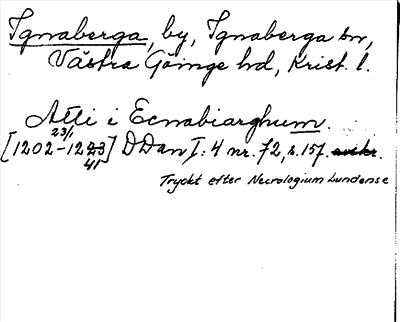 Ignaberga, by, Ignaberga sn,
Västra Göinge hd, Krist. l.
Atti i Ecnabiarghum.
23/1
[1202-1223] DDan I:4 nr. 72, s. 157. avskr.
41
Tryckt efter Necrologium Lundense